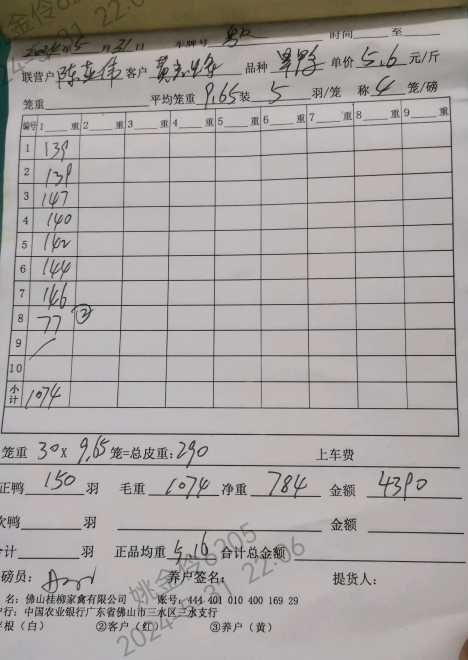 2024年5月31日 车牌号 时间 至
联营户 陈亚伟 客户 品种 单价 5.6 元/斤
笼重 平均笼重 9.65 装 5 羽/笼 称 4 笼/磅
编号 1 重 2 重 3 重 4 重 5 重 6 重 7 重 8 重 9 重
1 139
2 139
3 147
4 140
5 142
6 144
7 146
8 77 ②
9 /
10
小计 1074
笼重 30 x 9.65 笼=总皮重: 290 上车费
正鸭 150 羽 毛重 1074 净重 784 金额 4390
次鸭 羽 金额
合计 羽 正品均重 5.16 合计总金额
磅员: 养户签名: 提货人:
名: 佛山桂柳家禽有限公司 账号: 444 401 010 400 169 29
户行: 中国农业银行广东省佛山市三水区三水支行
存根（白） ②客户（红） ③养户（黄）
姚金伶6305
2024-05-31 22:06